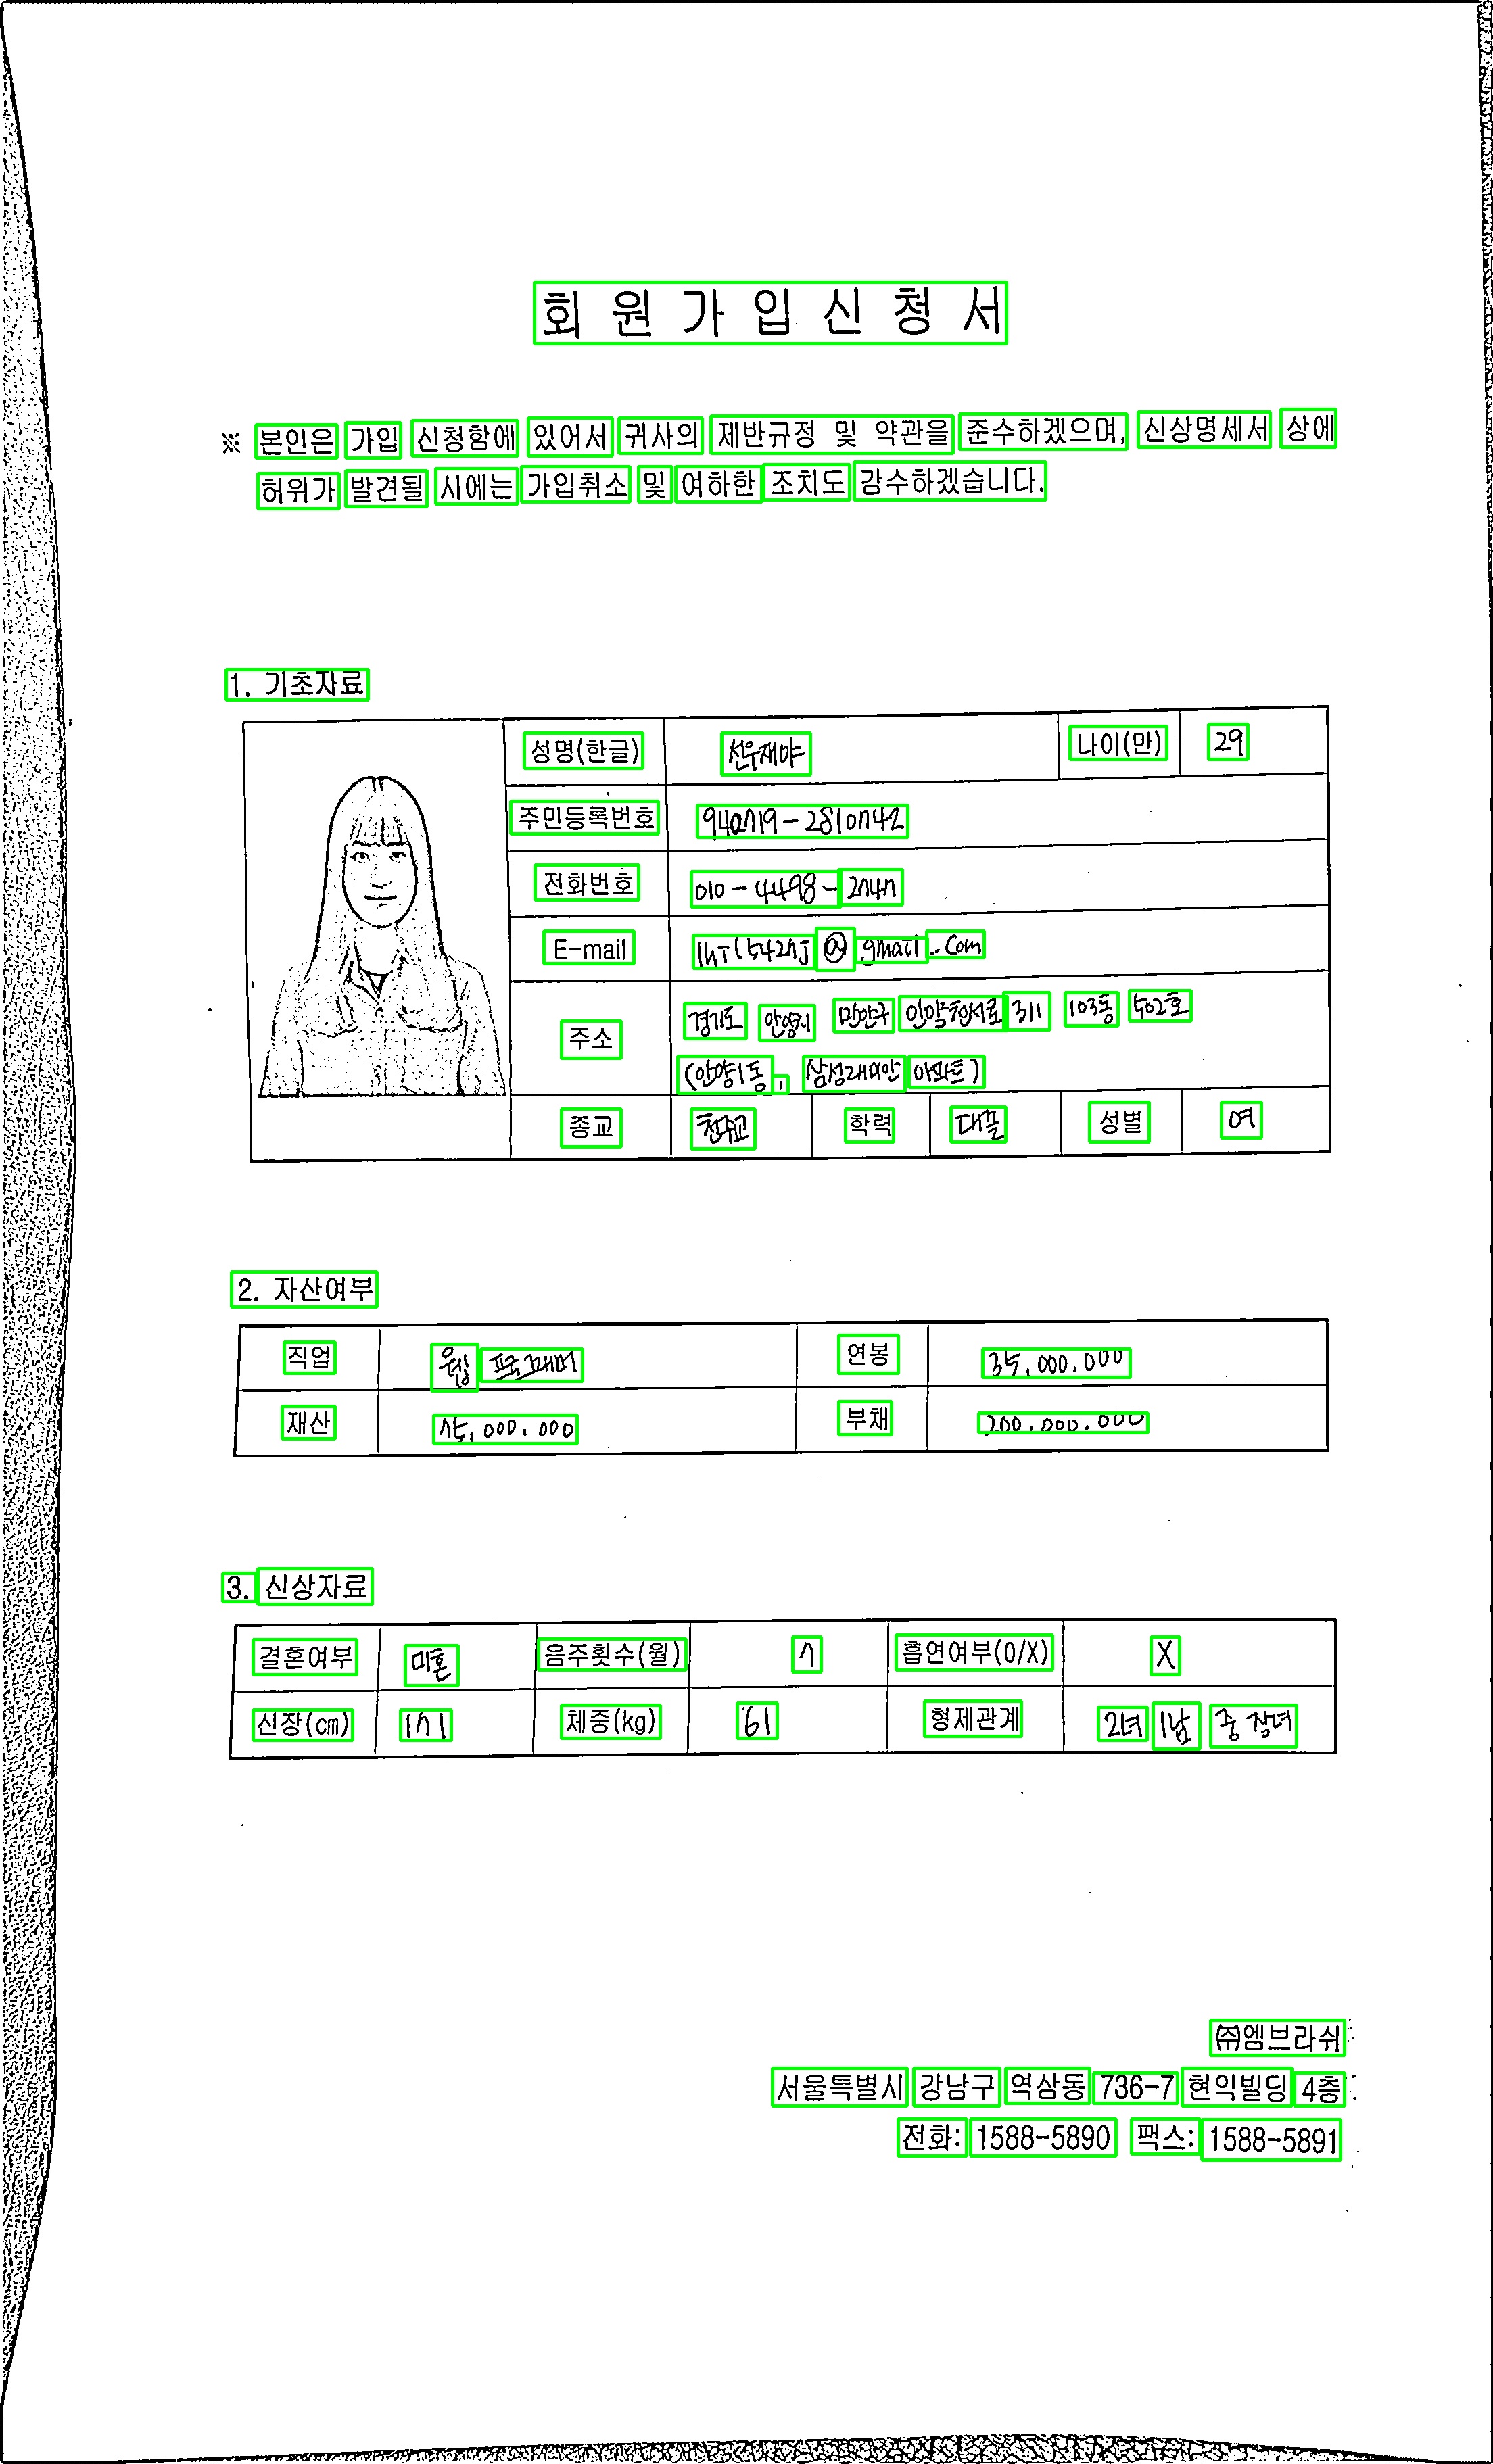 회 원 가 입 신 청 서
※ 본인은 가입 신청함에 있어서 귀사의 제반규정 및 약관을 준수하겠으며, 신상명세서 상에
허위가 발견될 시에는 가입취소 및 여하한 조치도 감수하겠습니다.
1. 기초자료
성명(한글) 선우재야 나이(만) 29
주민등록번호 940719-2810742
전화번호 010-4498-2747
E-mail @ gmail .com
주소 경기도 안양시 만안구 311 103동 502호
(안양1동, 삼성래미안 아파트)
종교 천주교 학력 대졸 성별 여
2. 자산여부
직업 웹 프로그래머 연봉 35,000,000
재산 75,000,000 부채 200,000,000
3. 신상자료
결혼여부 미혼 음주횟수(월) 7 흡연여부(O/X) X
신장(cm) 171 체중(kg) 61 형제관계 2녀 1남 중 장녀
㈜엠브라쉬
서울특별시 강남구 역삼동 736-7 현익빌딩 4층
전화: 1588-5890 팩스: 1588-5891